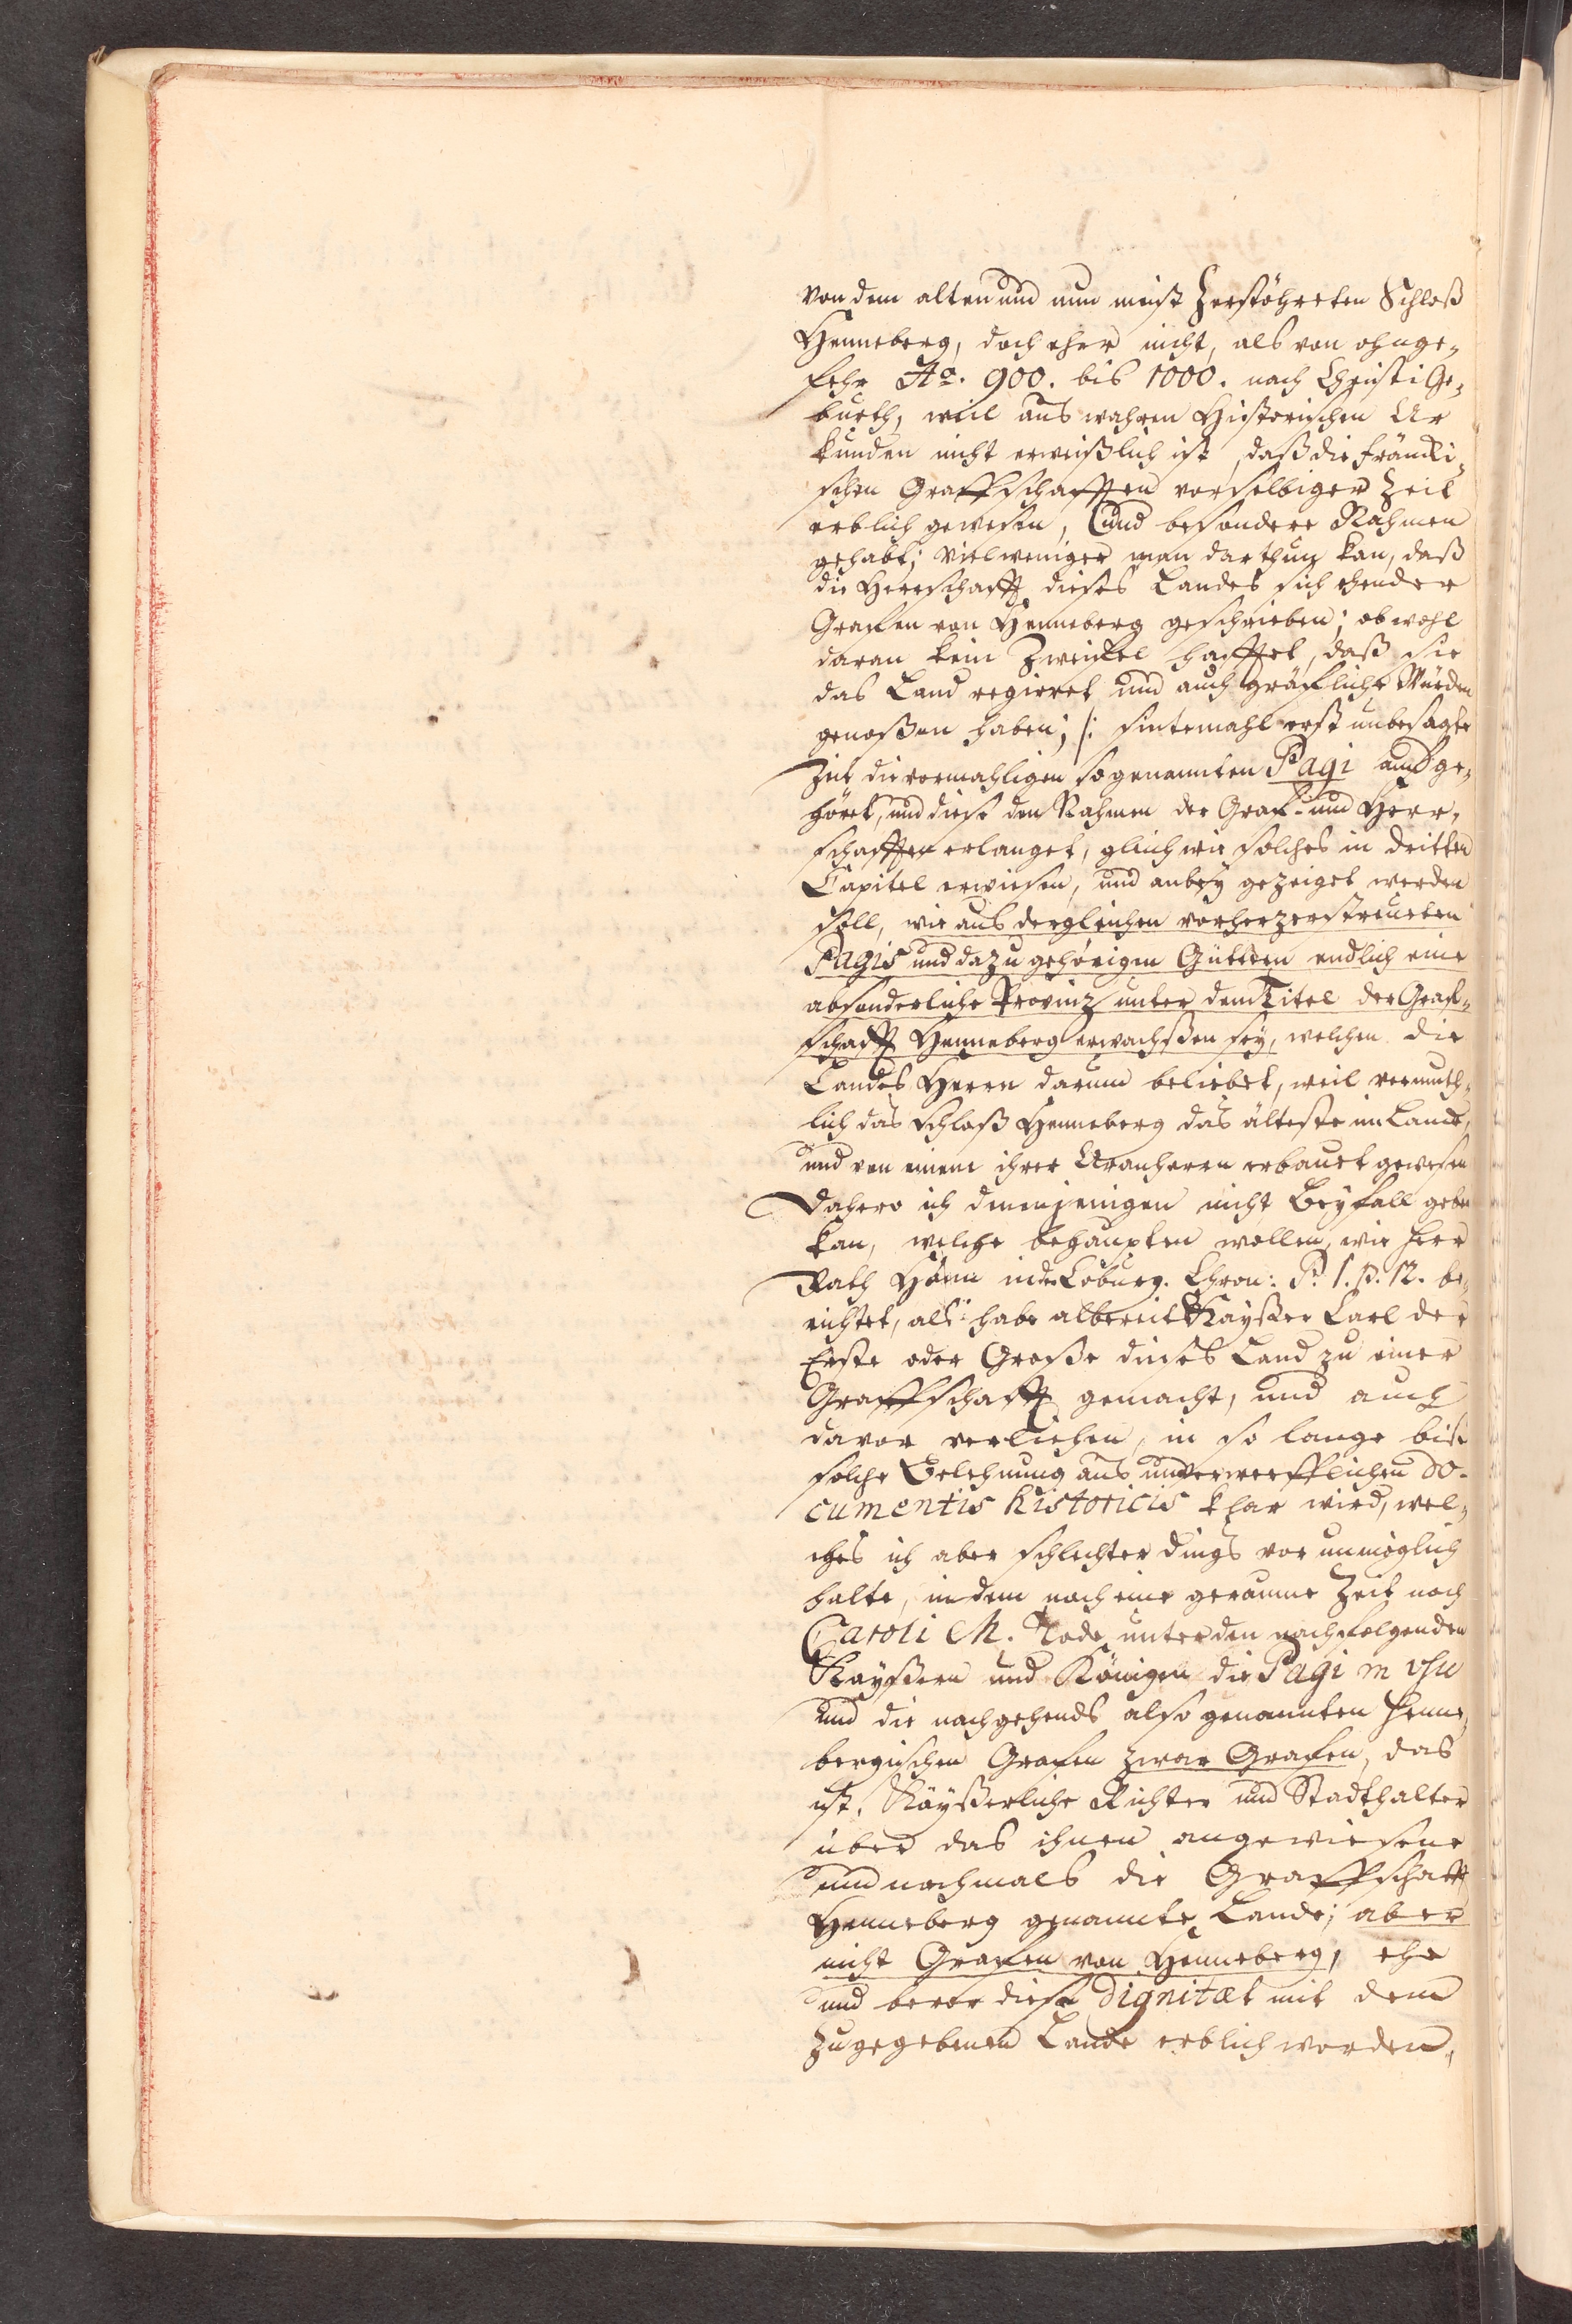 von dem alten und nun meist zerstöhreten Schloß
Henneberg, doch eher nicht, als von ohnge¬
fehr Ao. 900. bis 1000. nach Christi Ge¬
burth, weil aus wahren Historischen Ur
kunden nicht erweißlich ist, daß die Fräncki¬
schen Graffschafften vor selbiger Zeit
erblich gewesen, und besondere Nahmen
gehabt; vielweniger man darthun kan, daß
die Herrschafft dieses Landes sich ehender
Grafen von Henneberg geschrieben; ob wohl
daran kein Zweifel hafftet, daß sie
das Land regieret und auch gräfliche Würden
genoßen haben; /: sintemahl erst umbesagte
Zeit die vormahligen so genannten Pagi aufge¬
höret, und diese den Nahmen der Graf- und Herr¬
schafften erlanget, gleich wie solches in dritten
Capitel erwiesen, und anbey gezeiget werden
soll, wie aus dergleichen vorher zerstreueten
Pagis und dazu gehörigen Güttern endlich eine
absonderliche Provinz unter dem Titel der Graf¬
schafft Henneberg erwachßen sey, welchen die
Landes Herrn darum beliebet, weil vermuth¬
lich das Schloß Henneberg das älteste im Lande,
und von einem ihrer Uranherrn erbauet gewesen
Dahero ich denenjenigen nicht Beyfall geben
kan, welche behaupten wollen, wie Herr
Rath Hönn in der Coburg. Chron: P. 1. p. 12. be¬
richtet, als habe albereit Kayßer Carl der
Erste oder Große dieses Land zu einer
Graffschafft gemacht, und auch
davor verliehen, in so lange biß
solche Belehnung aus unverwerfflichen do¬
cumentis historicis klar wird, wel¬
ches ich aber schlechter dings vor unmöglich
halte, in dem noch eine geraume Zeit nach
Caroli M. Tode unter den nachfolgenden
Kayßern und Königen die Pagi in usu
und die nachgehends also genannten Henne¬
bergischen Grafen zwar Grafen, das
ist, Käyßerliche Richter und Stadthalter
über das ihnen angewiesene
und nachmals die Graffschafft
Henneberg genannte Lande; aber
nicht Grafen von Henneberg, ehe
und bevor diese Dignitæt mit dem
zugegebenen Lande erblich worden,